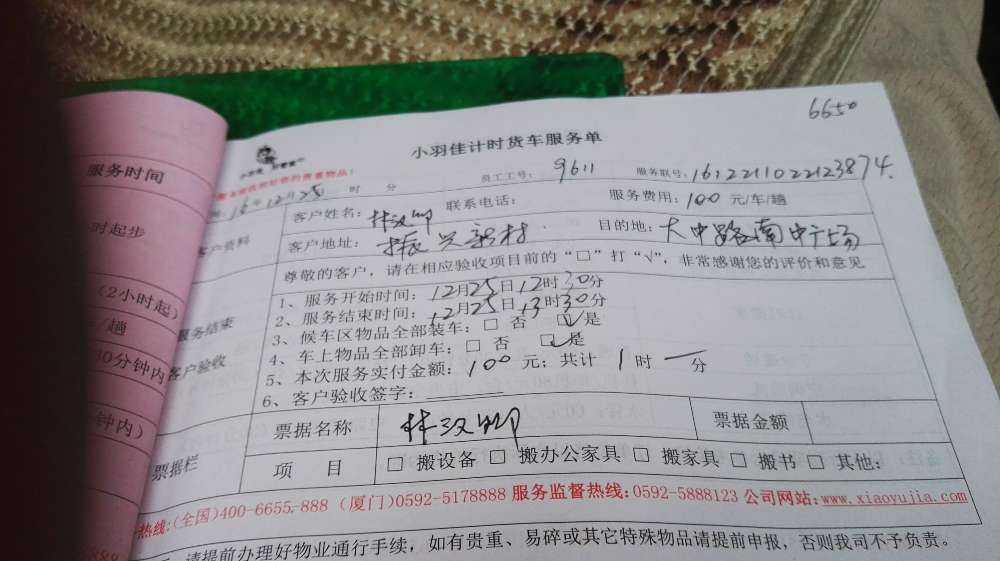 6650
小羽佳计时货车服务单
员工工号: 9611 服务联号: 161221102212 3874
16年12月25 时 分
客户姓名: 联系电话: 服务费用: 100 元/车/趟
客户资料
客户地址: 振兴新村 目的地: 大中路南中广场
尊敬的客户，请在相应验收项目前的“□”打“√”，非常感谢您的评价和意见
服务结束
客户验收
1、服务开始时间: 12月25日12时30分
2、服务结束时间: 12月25日13时30分
3、候车区物品全部装车: □ 否 ☑是
4、车上物品全部卸车: □ 否 ☑是
5、本次服务实付金额: 100 元; 共计 1 时 一 分
6、客户验收签字:
票据栏
票据名称 票据金额
项 目 □ 搬设备 □ 搬办公家具 □ 搬家具 □ 搬书 □ 其他:
热线:(全国)400-6655-888 (厦门)0592-5178888 服务监督热线:0592-5888123 公司网站:www.xiaoyujia.com
请提前办理好物业通行手续，如有贵重、易碎或其它特殊物品请提前申报，否则我司不予负责。
服务时间
时起步
(2小时起)
/趟
30分钟内
分钟内)
888